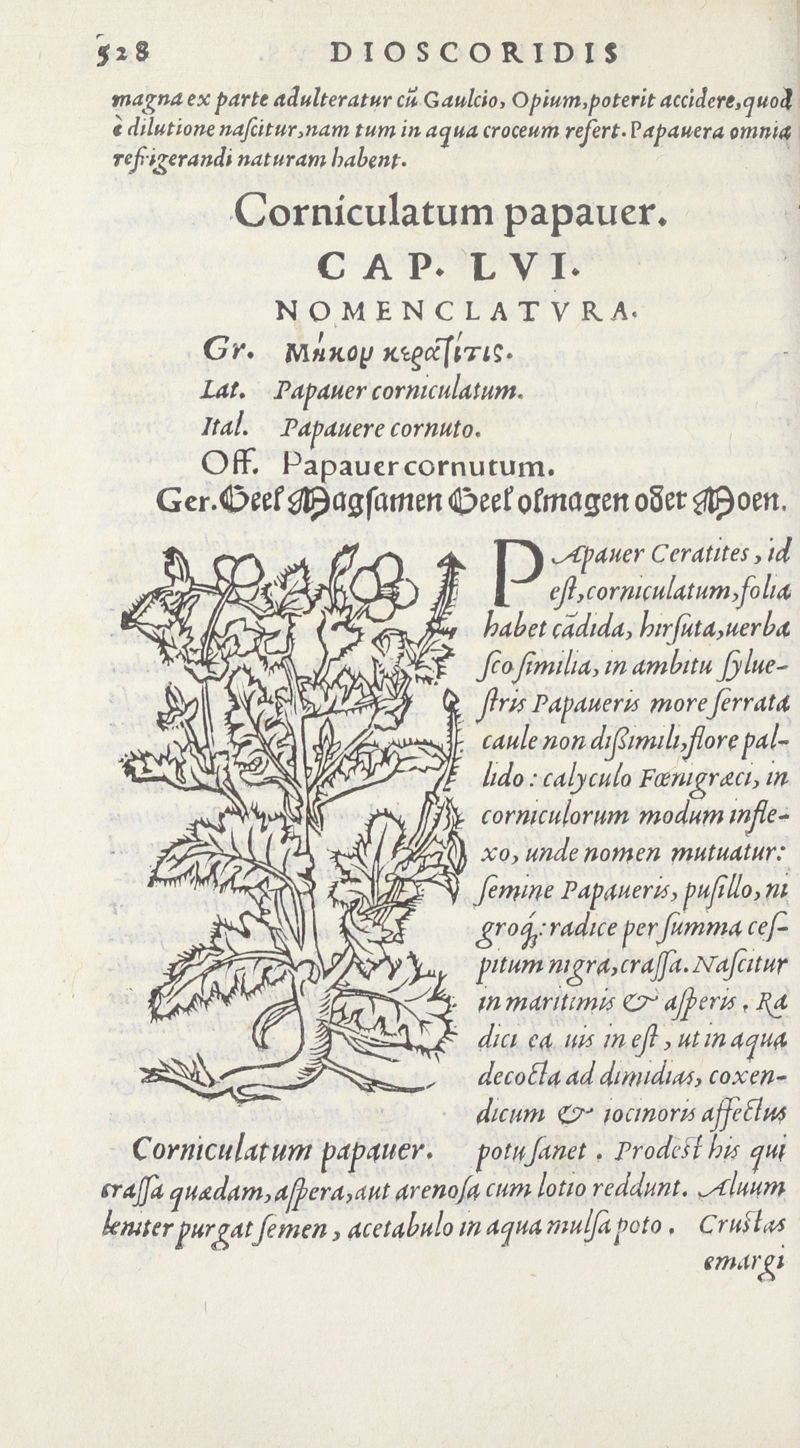 528 DIOSCORIDIS
magna ex parte adulteratur cū Gaulcio, Opium, poterit accidere, quod
è dilutione naſcitur, nam tum in aqua croceum refert. Papauera omnia
refrigerandi naturam habent.
Corniculatum papauer.
CAP. LVI.
NOMENCLATVRA.
Gr. Μήκον κερατίτις.
Lat. Papauer corniculatum.
Ital. Papauere cornuto.
Off. Papauer cornutum.
Ger. Geel Magſamen Geel olmagen oder Moen.
PApauer Ceratites, id
eſt, corniculatum, folia
habet cādida, hirſuta, uerba
ſco ſimilia, in ambitu ſylue-
ſtris Papaueris more ſerrata
caule non dißimili, flore pal-
lido: calyculo Fœnigræci, in
corniculorum modum infle-
xo, unde nomen mutuatur:
ſemine Papaueris, puſillo, ni
groq́;: radice per ſumma ceſ-
pitum nigra, craſſa. Naſcitur
in maritimis & aſperis. Ra
dici ea uis in eſt, ut in aqua
decocta ad dimidias, coxen-
dicum & iocinoris affectus
Corniculatum papauer. potu ſanet. Prodest his qui
craſſa quædam, aſpera, aut arenoſa cum lotio reddunt. Aluum
leniter purgat ſemen, acetabulo in aqua mulſa poto. Crustas
emargi